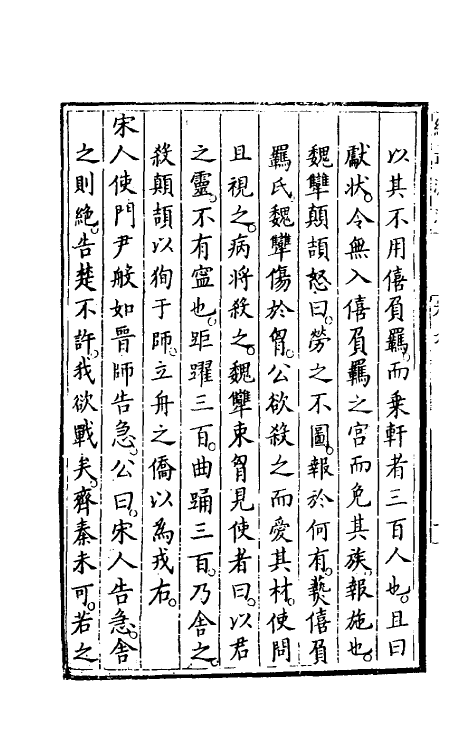 以其不用僖負羈。而乗軒者三百人也。且曰
獻狀。令無入僖負羈之宫而免其族。報施也。
魏犨顛頡怒曰。勞之不圖。報於何有。爇僖負
羈氏。魏犨傷於胷。公欲殺之而愛其材。使問
且視之。病將殺之。魏犨束胷見使者曰。以君
之靈。不有寧也。距躍三百。曲踊三百。乃舍之。
殺顛頡以狥于師。立舟之僑以為戎右。
宋人使門尹般如晉師告急。公曰。宋人告急。舍
之則絶。告楚不許。我欲戰矣。齊秦未可。若之